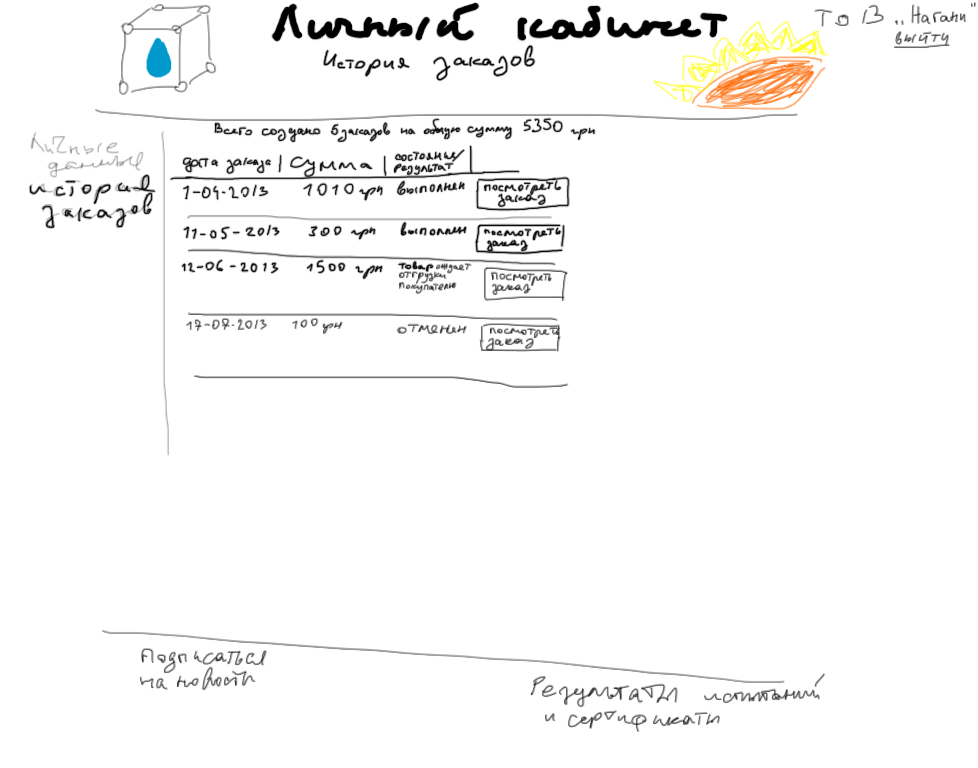 Личный кабинет
ТОВ „Натани"
выйти
История заказов
Всего создано 5 заказов на общую сумму 5350 грн
Личные
данные
история
заказов
дата заказа | Сумма | состояние/
результат
1-04-2013 1010 грн выполнен посмотреть
заказ
11-05-2013 300 грн выполнен посмотреть
заказ
12-06-2013 1500 грн товар ожидает
отгрузки
покупателю
посмотреть
заказ
17-07-2013 100 грн отменен посмотреть
заказ
Подписаться
на новости
Результаты испытаний
и сертификаты